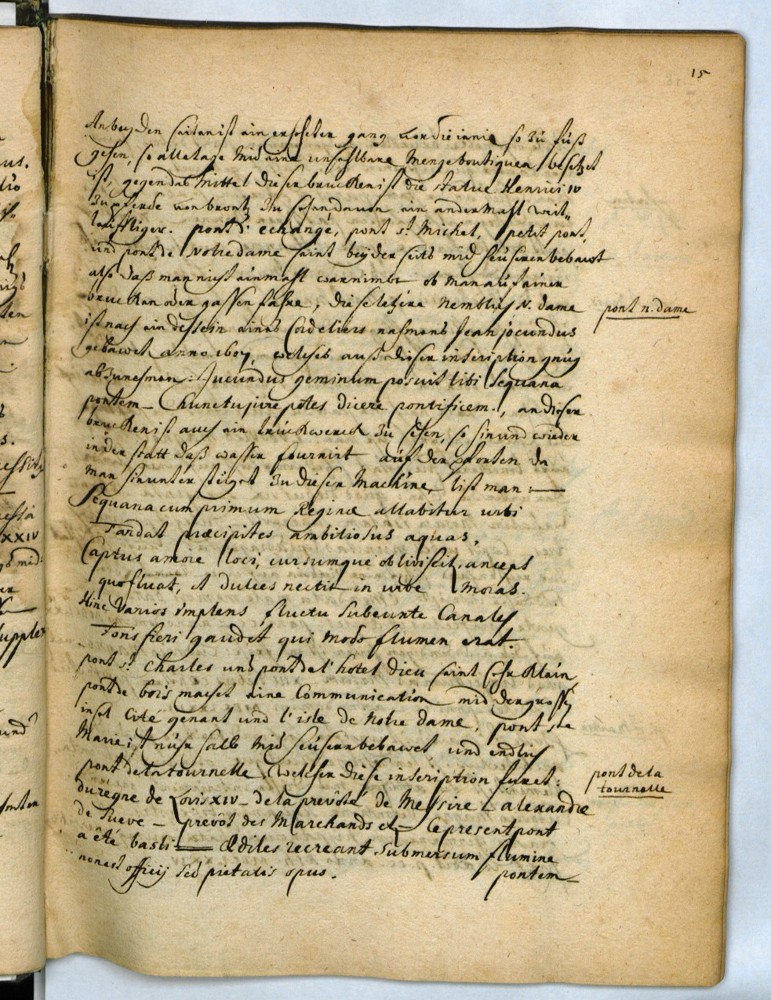 15
An beyden seiten ist ein erhebter gang vor die jenige so zu fuß
gehen, so alletage mid eine unzahlbare Menge boutiquen besetzt
ist, gegen das Mittel dieser brucken ist die statue Henrici IV
zu pferde von brontz zu sehen davon ein andermahl weit-
leufftiger. pont d'echange, pont st Michel, petit pont,
und pont de Notre dame seint beyderseits mid heuseren bebawet
als daß man nicht einmahl warnimbt ob man auf einer
brucken oder gassen fahre, die letzere nemblich N. dame
pont n. dame
ist nach ein dessein eines Cordeliers nahmens Jean jocundus
gebawet anno 1507, welches auß dieser inscription gnug
abzunehmen: Jucundus geminum posuit tibi Sequana
pontem — hunc tu jure potes dicere pontificem, an dieser
brucken ist auch ein truckwerck zu sehen, so hin und wieder
in der statt daß wasser fournirt auf den pforten da
man hinunter steiget zu dieser Machine, list man: —
Sequana cum primum Reginæ allabitur urbi
Tardat præcipites ambitiosus aquas.
Captus amore loci, cursumque obliviscit, anceps
quo fluat, et dulces nectit in urbe moras.
Hinc Varios implens, fluctu subeunte Canales
Fons fieri gaudet qui modo flumen erat.
pont st. Charles und pont de l'hotel dieu seint sehr klein,
pont de bois machet eine Communication mid der großen
insel Cité genant und l'isle de Notre dame, pont ste
Marie ist nuhr halb mid heuseren bebawet und endlich
pont de la tournelle, welcher diese inscription furet:
pont de la
tournelle
du regne de Louis XIV — de la prevôté de Messire — alexandre
de Seve — prevôt des Marchands et — Ce present pont
a êté basti — Ædiles recreant submersum flumine
pontem —
non est officij sed pietatis opus.